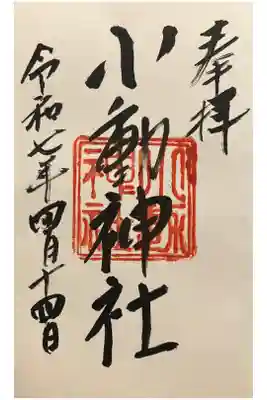 奉拝
小動神社
令和七年四月十四日